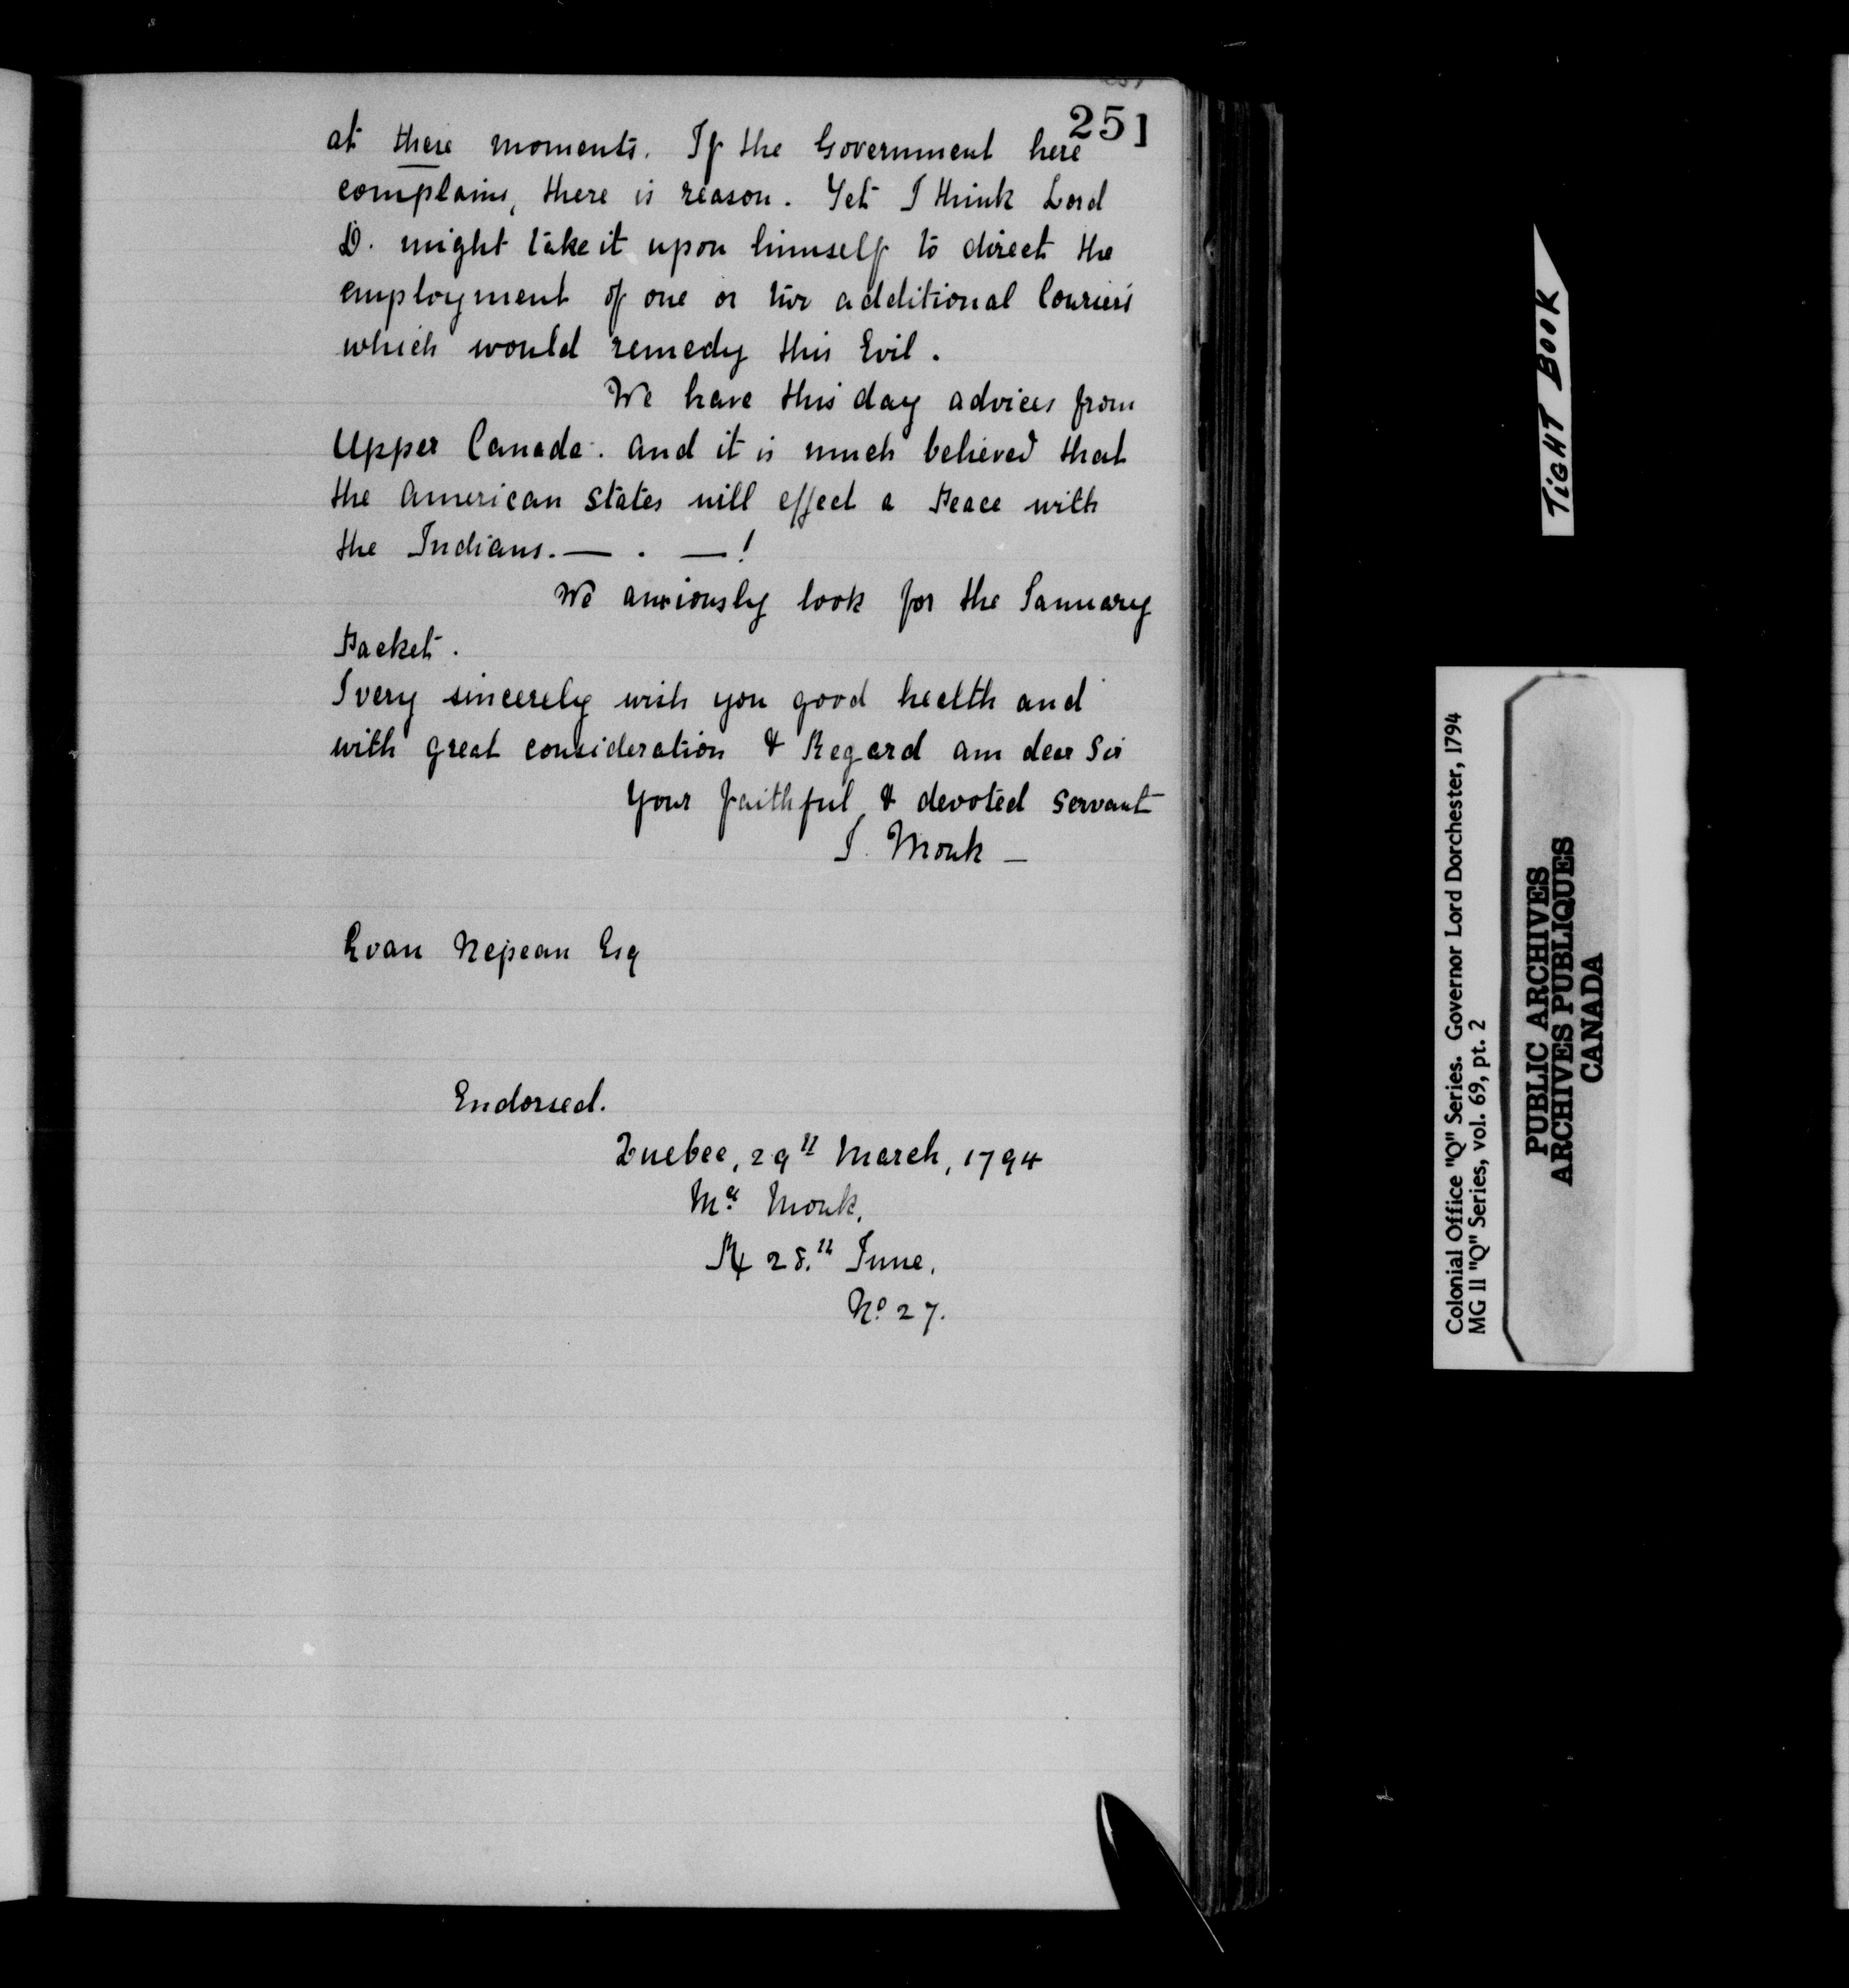 251
at these moments. If the Government here
complains, there is reason. Yet I think Lord
D. might take it upon himself to direct the
employment of one or two additional Couriers
which would remedy this Evil.
We have this day advices from
Upper Canada. and it is much believed that
the American States will effect a Peace with
the Indians. — . — !
We anxiously look for the January
Packet.
I very sincerely wish you good health and
with great consideration & Regard am dear Sir
Your faithful & devoted Servant
J. Monk —
Evan Nepean Esq
Endorsed.
Quebec, 29th March, 1794
Mr Monk.
Rx 28.th June.
No 27.
TIGHT BOOK
Colonial Office "Q" Series. Governor Lord Dorchester, 1794
MG 11 "Q" Series, vol. 69, pt. 2
PUBLIC ARCHIVES
ARCHIVES PUBLIQUES
CANADA